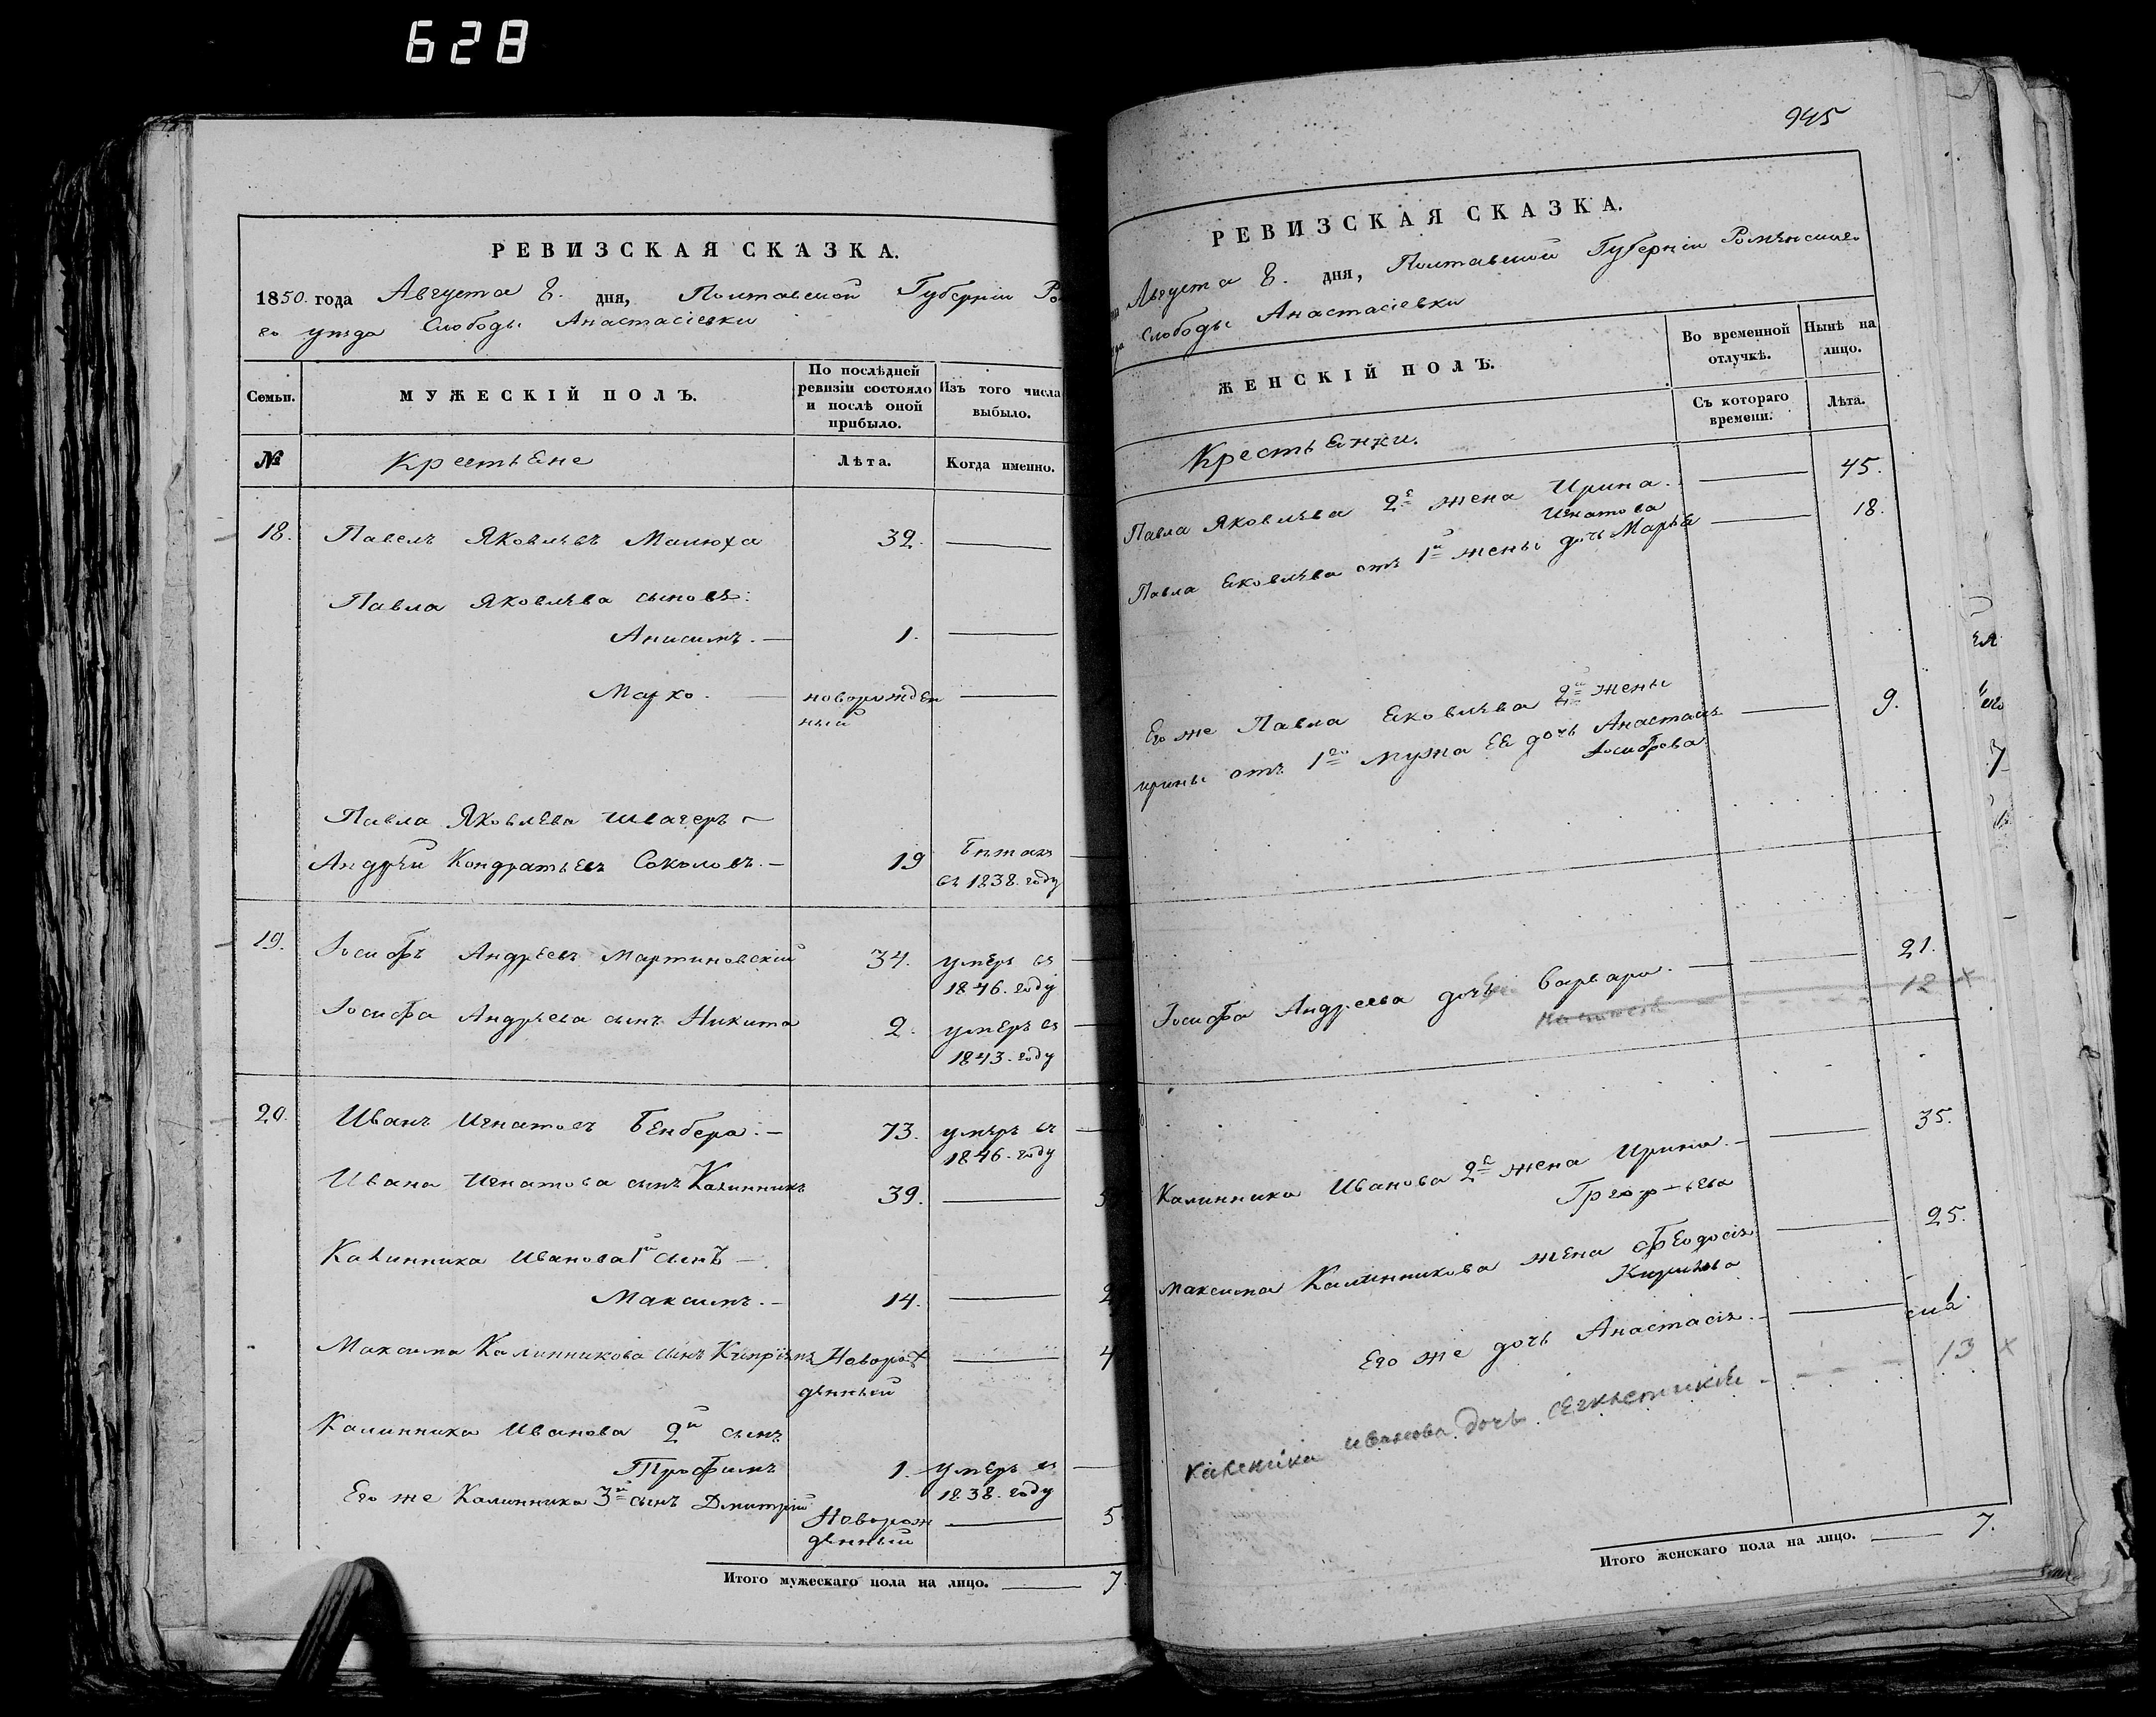 628
РЕВИЗСКАЯ СКАЗКА.
1850. года Августа 8. дня, Полтавской Губерніи Ро
го уѣзда Слободы Анастасіевки
Семьи.
МУЖЕСКІЙ ПОЛЪ.
По послѣдней
ревизіи состояло
и послѣ оной
прибыло.
Изъ того числа
выбыло.
№
Крестьяне
Лѣта.
Когда именно.
18. Павелъ Яковлѣвъ Малюха 32.
Павла Яковлѣва сыновья:
Анисимъ. 1.
Марко. новорожден
ный
Павла Яковлева швагеръ
Андрѣй Кондратьевъ Соколовъ. 19
въ 1838. году
19. Іосифъ Андреевъ Мартиновскій 34. умеръ въ
1846. году
Іосифа Андрѣева сынъ Никита 2. умеръ въ
1843. году
20. Иванъ Игнатовъ Бендера. 73. умѣръ въ
1846. году
Ивана Игнатова сынъ Калинникъ 39. 5
Калинника Иванова 1й сынъ
Максимъ. 14. 2
Максима Калинникова сынъ Кипріянъ Новорож
денный 4
Калинника Иванова 2й сынъ
Трофимъ 1. умеръ въ
1838. году
Его же Калинника 3й сынъ Дмитрій Новорож
денный 5
Итого мужескаго пола на лицо. 7.
945
РЕВИЗСКАЯ СКАЗКА.
Августа 8. дня, Полтавской Губерніи Роменскаго
Слободы Анастасіевки
ЖЕНСКІЙ ПОЛЪ.
Во временной
отлучкѣ.
Нынѣ на
лицо.
Съ котораго
времени.
Лѣта.
Крестьянки.
Павла Яковлѣва 2я жена Ирина. 45.
Игнатова
Павла Яковлѣва отъ 1й жены дочь Марья 18.
Его же Павла Яковлѣва 2й жены
Ирины отъ 1го мужа ея дочь Анастасія 9.
Іосифова
Іосифа Андреева дочь Варвара. 21.
12 x
Калинника Иванова 2я жена Ирина. 35.
Максима Калинникова жена Феодосія 25.
Его же дочь Анастасія. 1
Иванова дочь 13 x
Итого женскаго пола на лицо. 7.